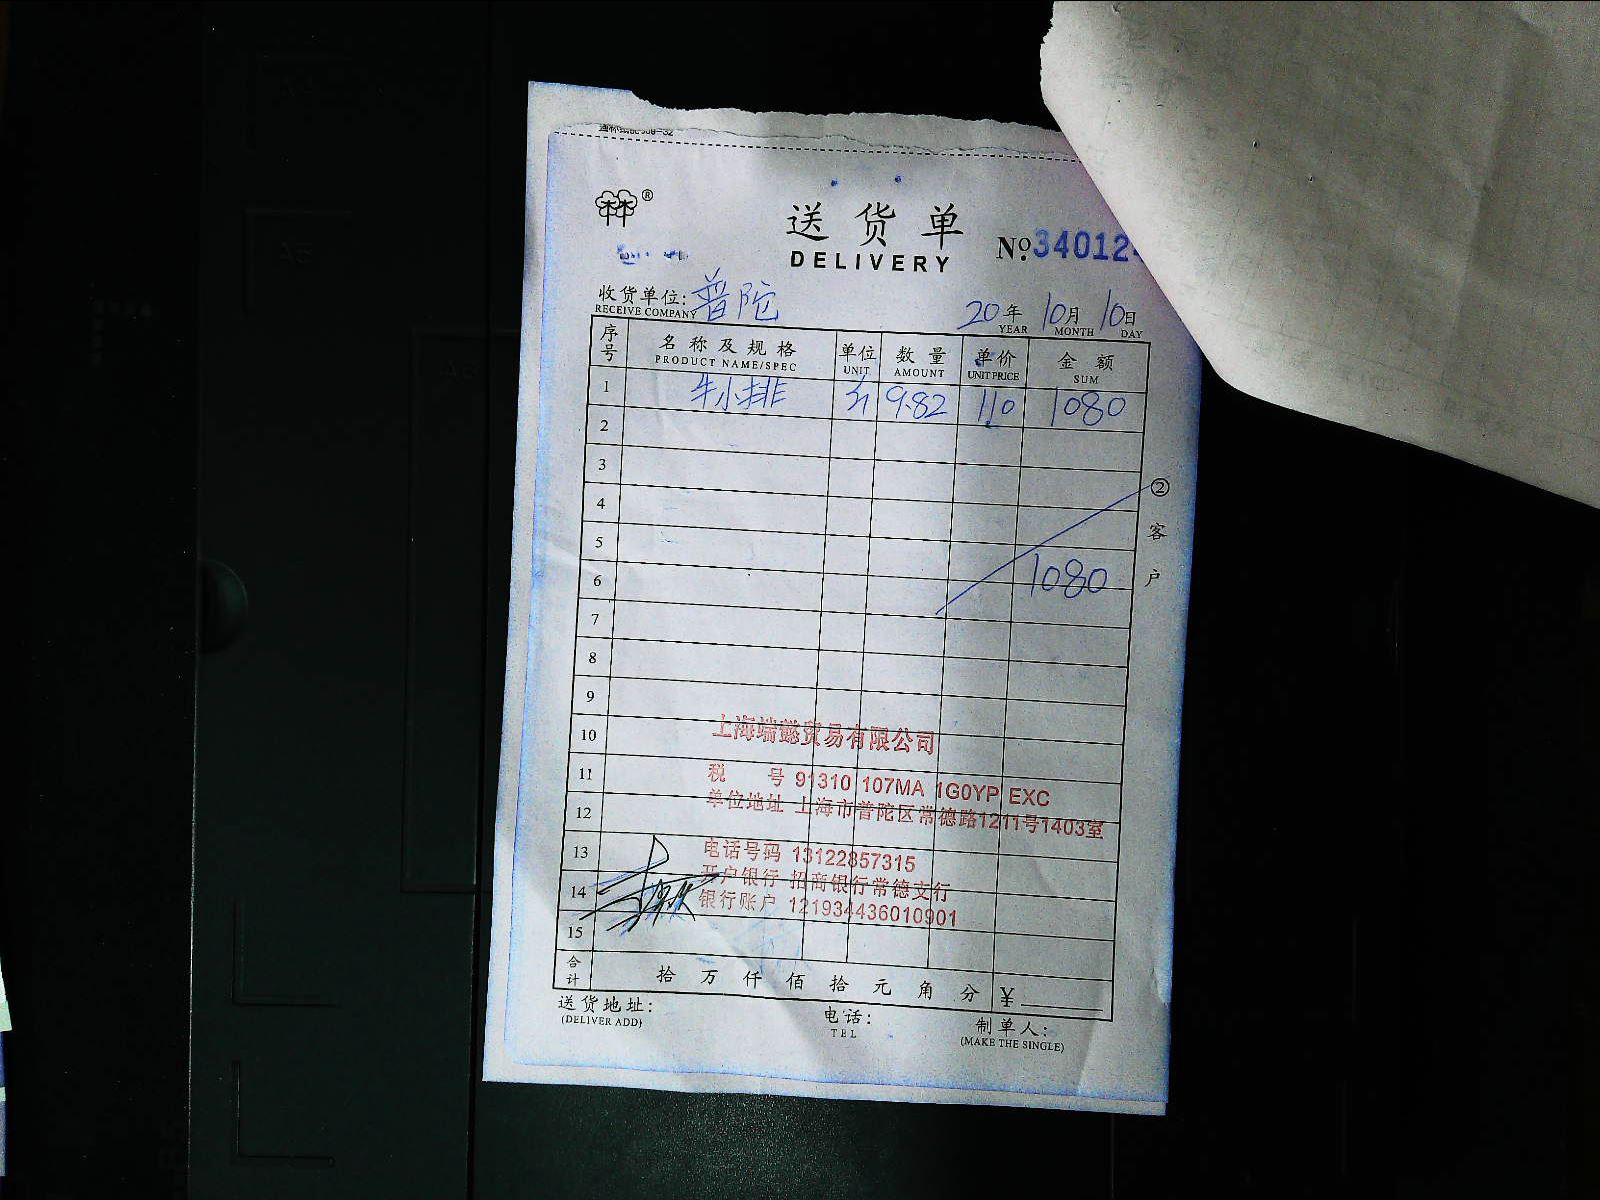 ®
送货单
DELIVERY
No.34012
收货单位: 普陀
RECEIVE COMPANY
20年 10月 10日
YEAR MONTH DAY
序号 名称及规格 单位 数量 单价 金额
PRODUCT NAME/SPEC UNIT AMOUNT UNIT PRICE SUM
1 牛小排 9.82 110 1080
2
3
② 客户
4
5
6 1080
7
8
9
10 上海端懿贸易有限公司
11 税 号 91310 107MA 1G0YP EXC
12 单位地址 上海市普陀区常德路1211号1403室
13 电话号码 13122857315
14 开户银行 招商银行常德支行
银行账户 121934436010901
15
合计 拾 万 仟 佰 拾 元 角 分 ¥
送货地址: 电话: 制单人:
(DELIVER ADD) TEL (MAKE THE SINGLE)